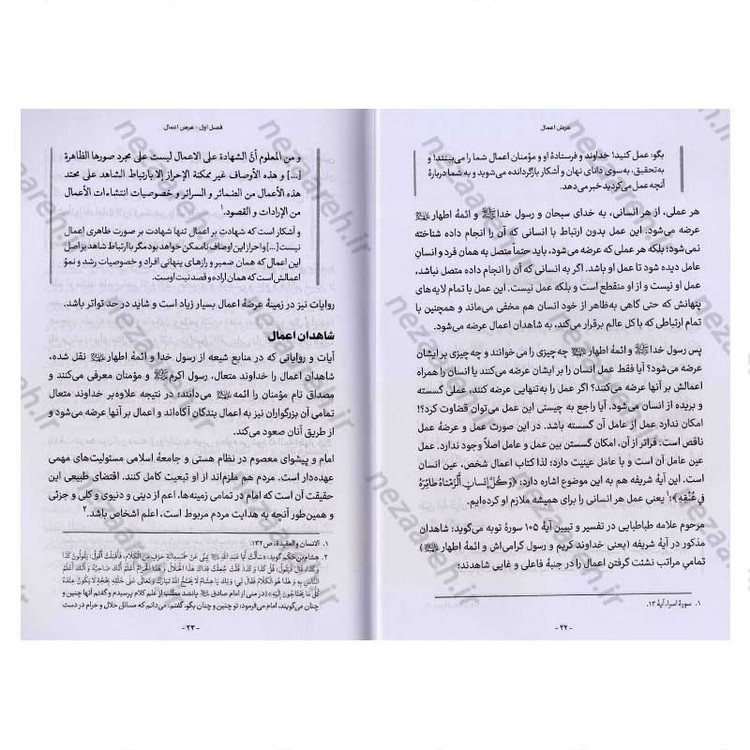 عرض اعمال
بگو: عمل کنید! خداوند و فرستادهٔ او و مؤمنان اعمال شما را می‌بینند! و
به‌تحقیق، به‌سوی دانای نهان و آشکار بازگردانده می‌شوید و به شما دربارهٔ
آنچه عمل می‌کردید خبر می‌دهد.
هر عملی، از هر انسانی، به خدای سبحان و رسول خدا ﷺ و ائمهٔ اطهار
عرضه می‌شود. این عمل بدون ارتباط با انسانی که آن را انجام داده شناخته
نمی‌شود؛ بلکه هر عملی که عرضه می‌شود، باید حتماً متصل به همان فرد و انسانِ
عامل دیده شود تا عمل او باشد. اگر به انسانی که آن را انجام داده متصل نباشد،
عمل او نیست و از او منقطع است و بلکه عمل نیست. این عمل با تمام لایه‌های
پنهانش که حتی گاهی به‌ظاهر از خود انسان هم مخفی می‌ماند و همچنین با
تمام ارتباطی که با کل عالم برقرار می‌کند، به شاهدان اعمال عرضه می‌شود.
پس رسول خدا ﷺ و ائمهٔ اطهار چه‌چیزی را می‌خوانند و چه‌چیزی بر ایشان
عرضه می‌شود؟ آیا فقط عمل انسان را بر ایشان عرضه می‌کنند یا انسان را همراه
اعمالش بر آنها عرضه می‌کنند؟ اگر عمل را به‌تنهایی عرضه کنند، عملی گسسته
و بریده از انسان می‌شود. آیا راجع به چیستی این عمل می‌توان قضاوت کرد؟!
امکان ندارد عمل از عامل آن گسسته باشد. در این صورت عمل و عرضهٔ عمل
ناقص است؛ فراتر از آن، امکان گسستن بین عمل و عامل اصلاً وجود ندارد. عمل
عین عامل آن است و با عامل عینیت دارد؛ لذا کتاب اعمال شخص، عین انسان
است. این آیهٔ شریفه هم به این موضوع اشاره دارد: ﴿وَكُلَّ إِنسَانٍ أَلْزَمْنَاهُ طَائِرَهُ
فِي عُنُقِهِ﴾؛۱ یعنی عمل هر انسانی را برای همیشه ملازم او کرده‌ایم.
مرحوم علامه طباطبایی در تفسیر و تبیین آیهٔ ۱۰۵ سورهٔ توبه می‌گوید: شاهدان
مذکور در آیهٔ شریفه (یعنی خداوند کریم و رسول گرامی‌اش و ائمهٔ اطهار)
تمامی مراتب نشئت گرفتن اعمال را در جنبهٔ فاعلی و غایی شاهدند:
۱. سورهٔ اسرا، آیهٔ ۱۳.
- ۲۲ -
فصل اول - عرض اعمال
و من المعلوم أنّ الشهادة على الاعمال ليست على مجرد صورها الظاهرة
[...] و هذه الأوصاف غير ممكنة الإحراز إلا بارتباط الشاهد على محتد
هذه الأعمال من الضمائر و السرائر و خصوصيات انتشاءات الأعمال
من الإرادات و القصود.۱
و آشکار است که شهادت بر اعمال تنها شهادت بر صورت ظاهری اعمال
نیست؛ [...] و احراز این اوصاف ناممکن خواهد بود مگر با ارتباط شاهد بر اصل
این اعمال که همان ضمیر و رازهای پنهانی افراد و خصوصیات رشد و نمو
اعمالش است که همان اراده و قصد نیت اوست.
روایات نیز در زمینهٔ عرضهٔ اعمال بسیار زیاد است و شاید در حد تواتر باشد.
شاهدان اعمال
آیات و روایاتی که در منابع شیعه از رسول خدا و ائمهٔ اطهار نقل شده،
شاهدان اعمال را خداوند متعال، رسول اکرم ﷺ و مؤمنان معرفی می‌کنند و
مصداق تام مؤمنان را ائمه می‌دانند؛ در نتیجه علاوه‌بر خداوند متعال
تمامی آن بزرگواران نیز به اعمال بندگان آگاه‌اند و اعمال بر آنها عرضه می‌شود و
از طریق آنان صعود می‌کند.
امام و پیشوای معصوم در نظام هستی و جامعهٔ اسلامی مسئولیت‌های مهمی
عهده‌دار است. مردم هم ملزم‌اند از او تبعیت کامل کنند. اقتضای طبیعی این
حقیقت آن است که امام در تمامی زمینه‌ها، اعم از دینی و دنیوی و کلی و جزئی
و همین‌طور آنچه به هدایت مردم مربوط است، اعلم اشخاص باشد.۲
۱. الانسان و العقیدة، ص ۱۳۲.
۲. هشام‌بن‌حکم گوید:
می‌گویند، امام می‌فرمود: تو چنین و چنان بگو، گفتم: می‌دانم که مسائل حلال و حرام در دست
- ۲۳ -
nezaareh.ir